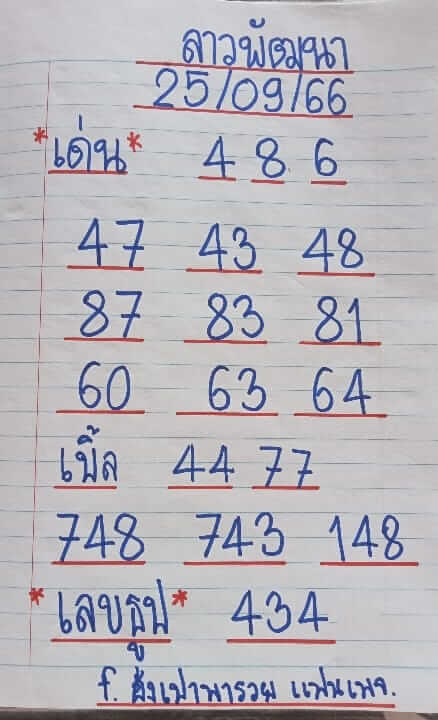 ลาวพัฒนา
25/09/66
*เด่น* 4 8 6
47 43 48
87 83 81
60 63 64
เบิ้ล 44 77
748 743 148
*เลขธูป* 434
f. พารวย แฟนเพจ.